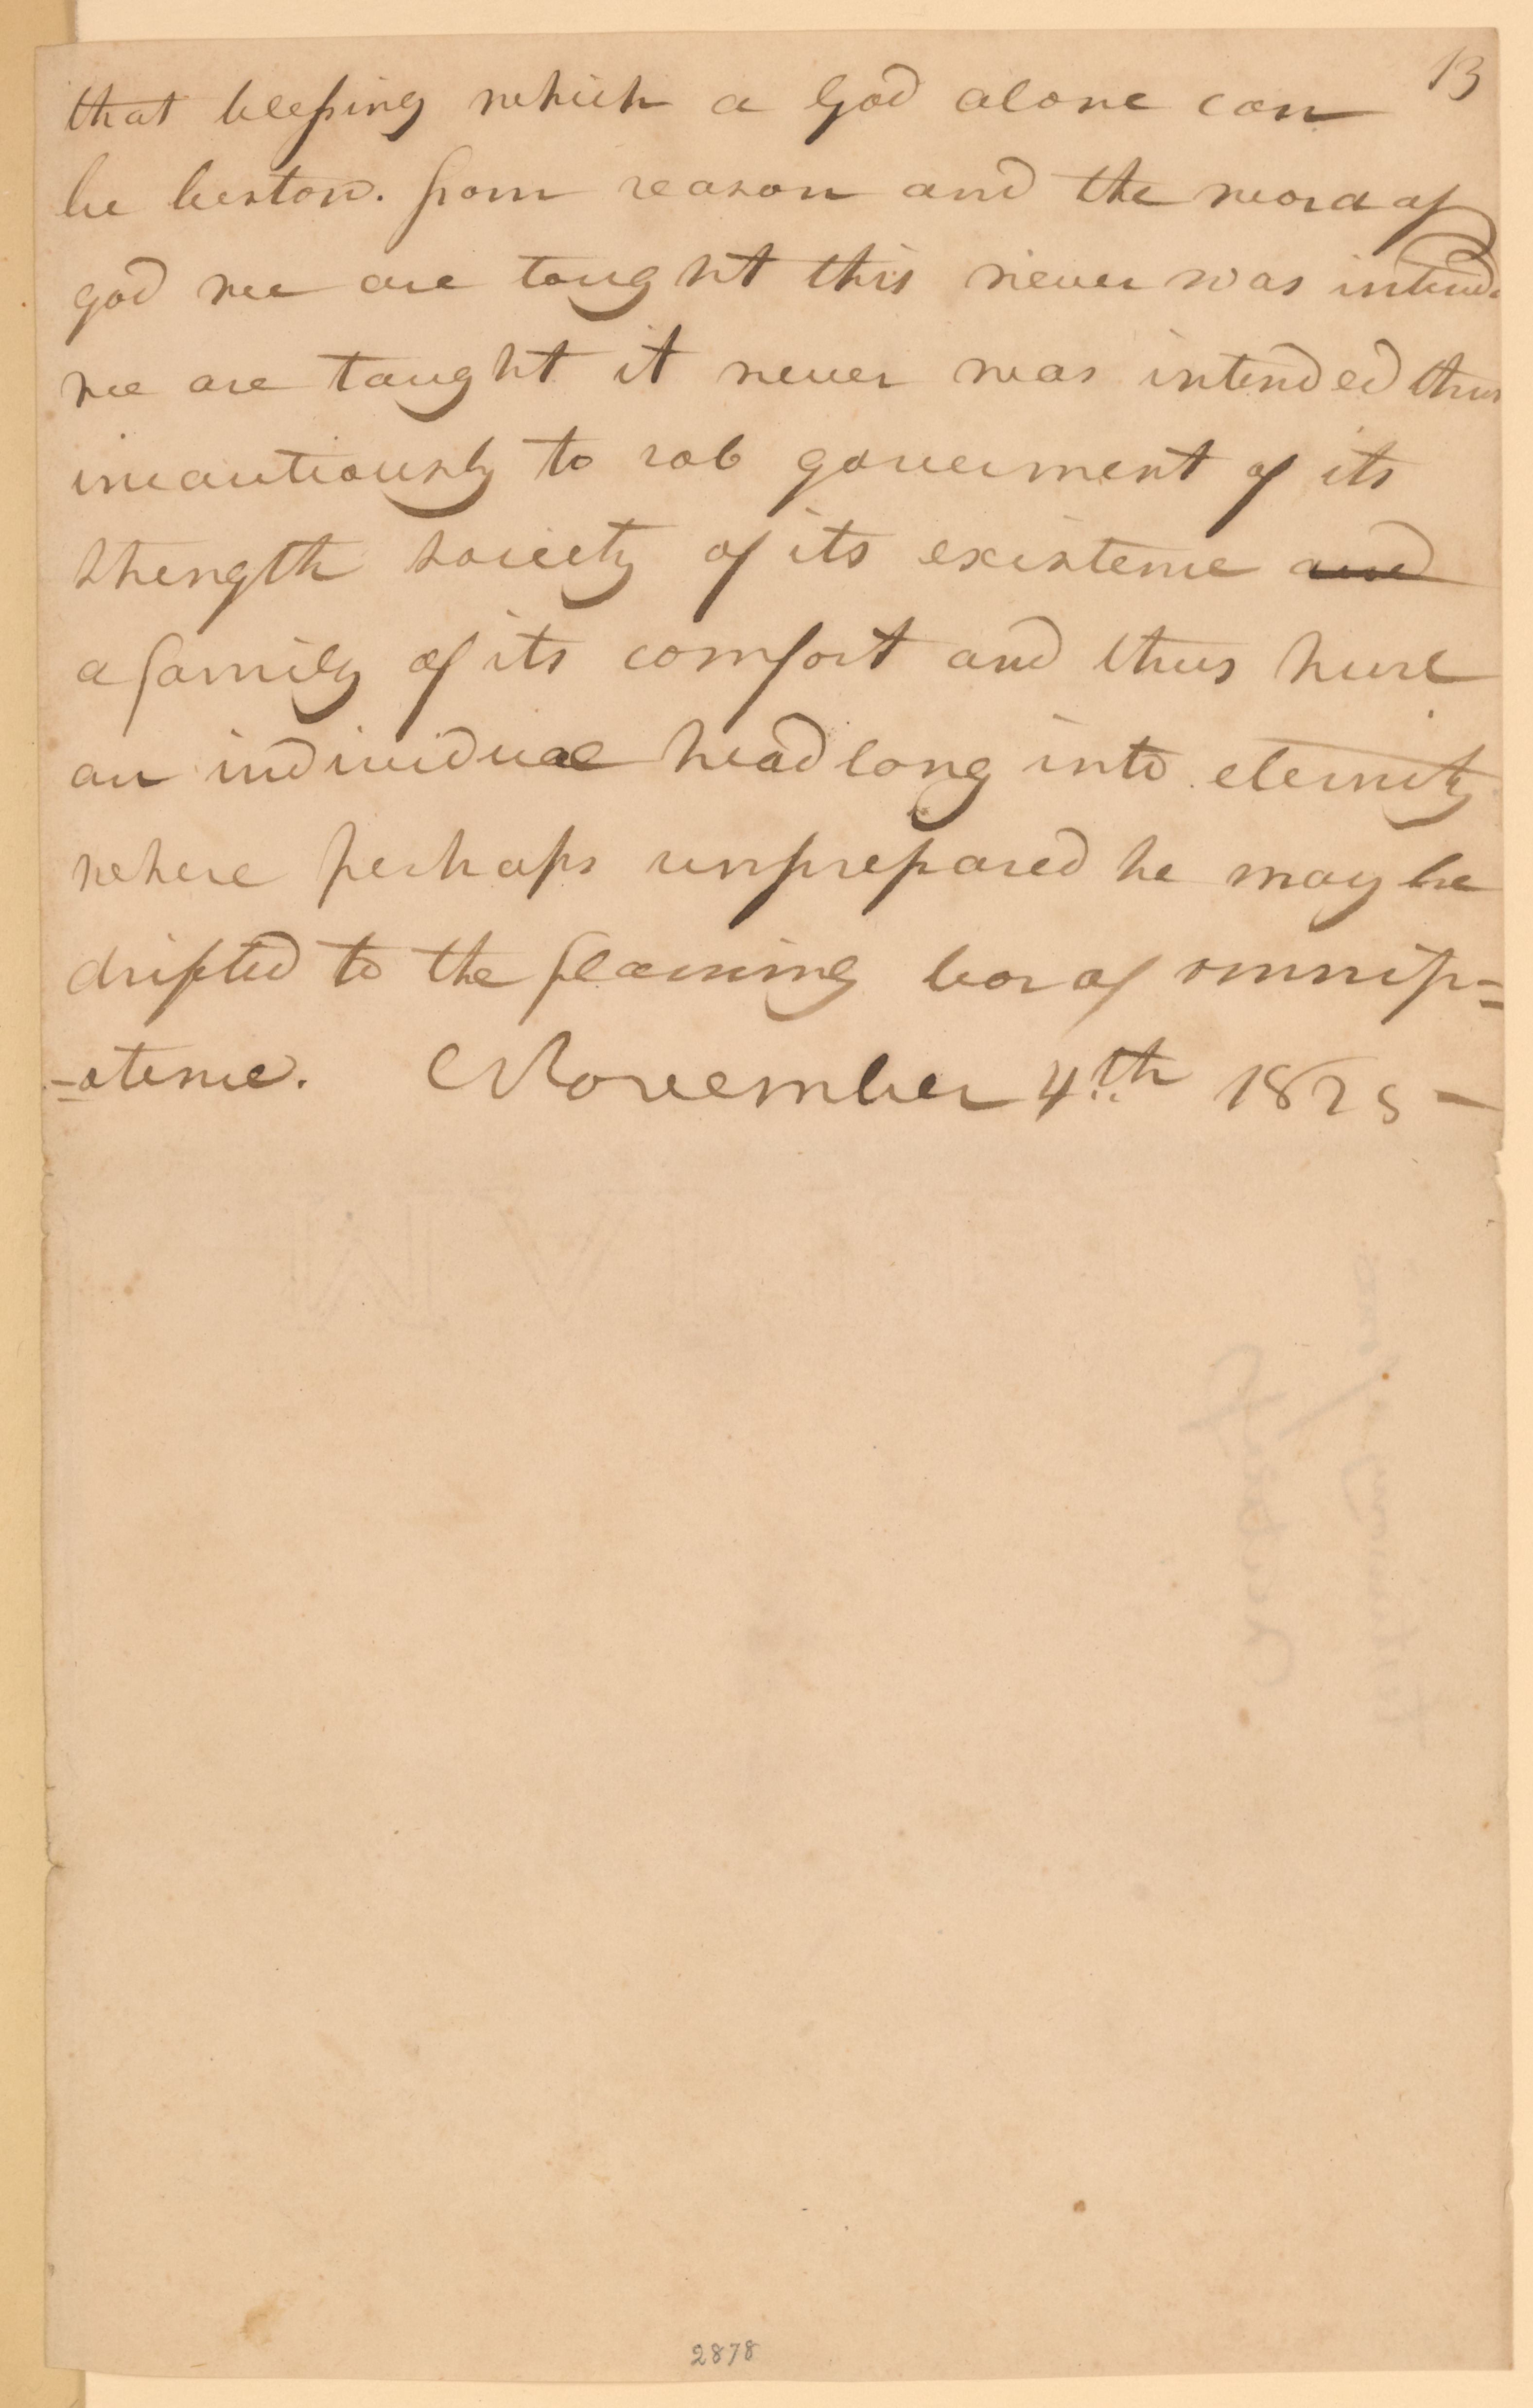 13
that blessing which a God alone can
be bestow. from reason and the word of
god we are taught this never was intend
we are taught it never was intended thus
incautiously to rob goverment of its
strength society of its existence and
a family of its comfort and thus hurl
an individual headlong into eternity
where perhaps unprepared he may be
drifted to the flaming bar of omnip=
=otence. November 4th 1825 —
2878